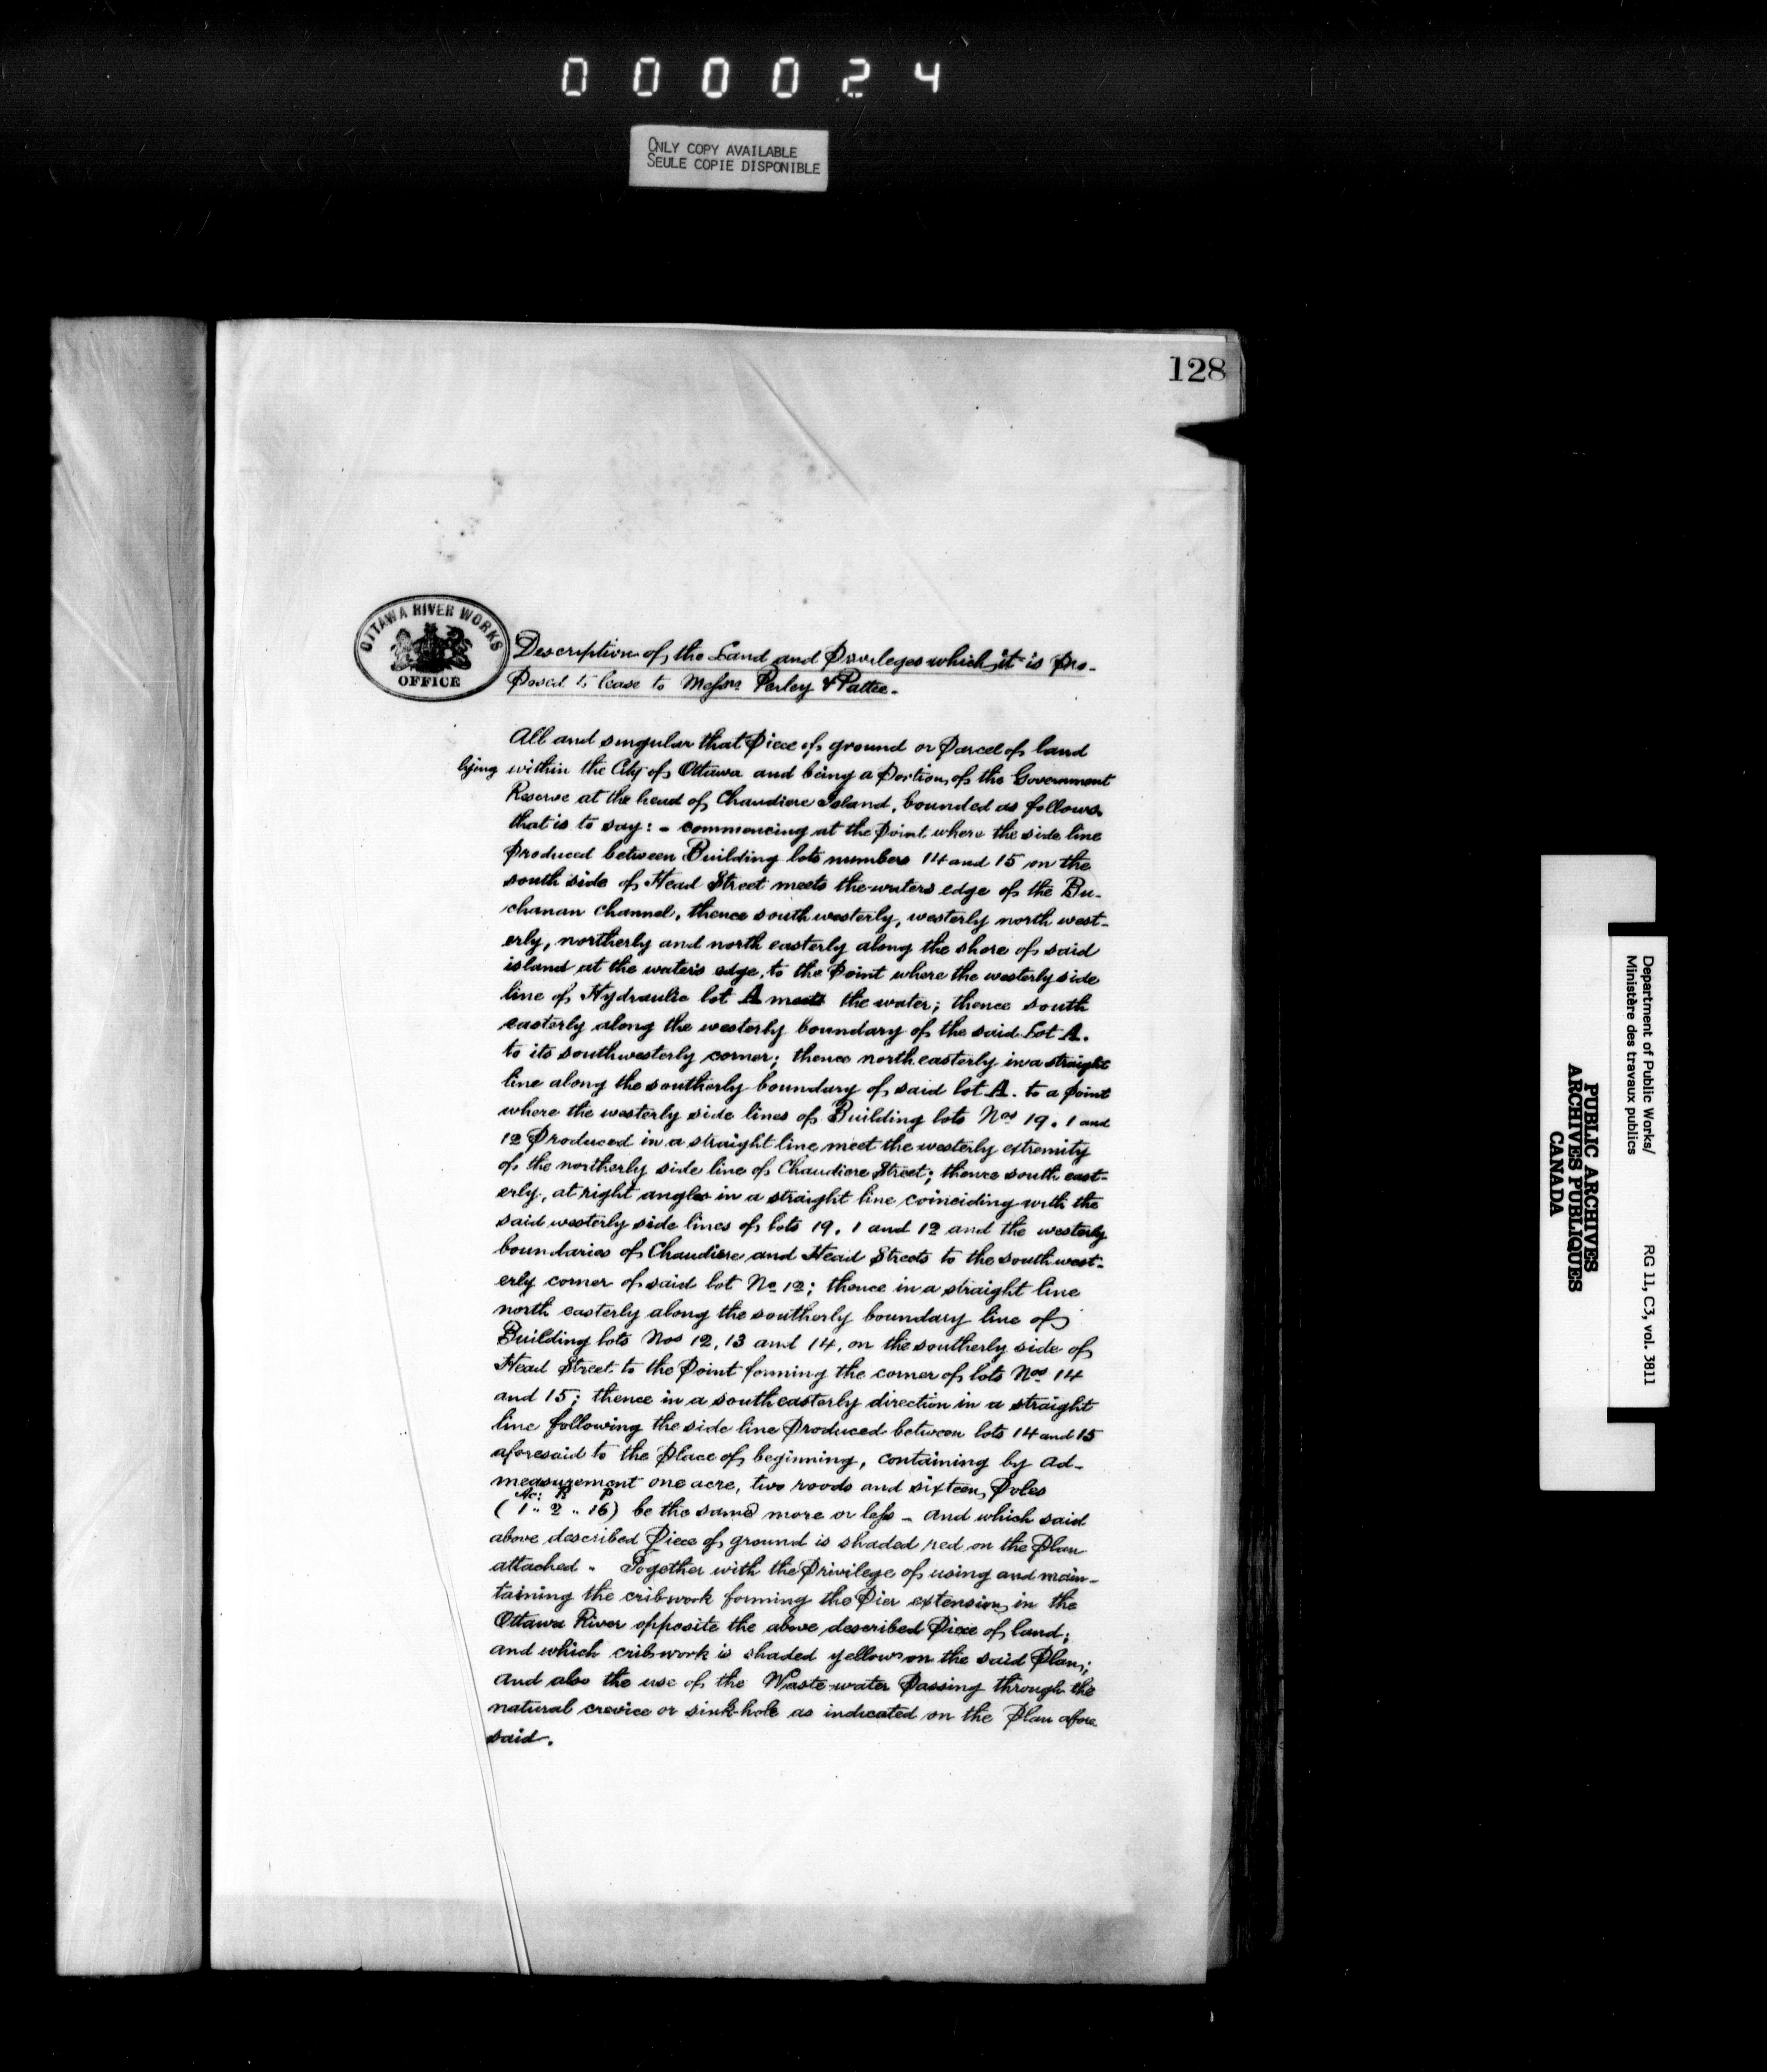 000024
ONLY COPY AVAILABLE
SEULE COPIE DISPONIBLE
128
OTTAWA RIVER WORKS
OFFICE
Description of the Land and Privileges which it is pro-
posed to lease to Messrs Perley & Pattee.
All and singular that Piece of ground or Parcel of land
lying within the City of Ottawa and being a Portion of the Government
Reserve at the head of Chaudiere Island, bounded as follows.
that is to say: - commencing at the Point where the side line
Produced between Building lots numbers 14 and 15 on the
south side of Head Street meets the waters edge of the Bu-
chanan channel, thence south westerly, westerly north west-
erly, northerly and north easterly along the shore of said
island at the water's edge, to the Point where the westerly side
line of Hydraulic lot A meets the water; thence south
easterly along the westerly boundary of the said Lot A.
to its southwesterly corner; thence north easterly in a straight
line along the southerly boundary of said lot A. to a point
where the westerly side lines of Building lots Nos 19. 1 and
12 Produced in a straight line meet the westerly extremity
of the northerly side line of Chaudiere Street; thence south east-
erly, at right angles in a straight line coinciding with the
said westerly side lines of lots 19. 1 and 12 and the westerly
boundaries of Chaudiere and Head Streets to the south west-
erly corner of said lot No 12; thence in a straight line
north easterly along the southerly boundary line of
Building lots Nos 12, 13 and 14, on the southerly side of
Head Street to the Point forming the corner of lots Nos 14
and 15; thence in a south easterly direction in a straight
line following the side line Produced between lots 14 and 15
aforesaid to the Place of beginning, containing by ad-
measurement one acre, two roods and sixteen Poles
Ac: R P
(1 .. 2 .. 16) be the same more or less - and which said
above described Piece of ground is shaded red on the Plan
attached - Together with the Privilege of using and main-
taining the cribwork forming the Pier extension in the
Ottawa River opposite the above described Piece of land;
and which cribwork is shaded yellow on the said Plan;
and also the use of the Waste-water Passing through the
natural crevice or sink-hole as indicated on the Plan afore
said.
Department of Public Works/
Ministère des travaux publics
RG 11, C3, vol. 3811
PUBLIC ARCHIVES
ARCHIVES PUBLIQUES
CANADA